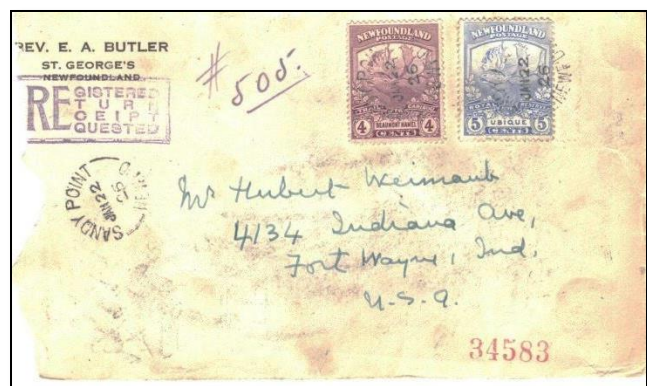 REV. E. A. BUTLER
ST. GEORGE'S
NEWFOUNDLAND
REGISTERED
TURN
CEIPT
QUESTED
# 505.
NEWFOUNDLAND
POSTAGE
JAN 22
26
BEAUMONT HAMEL
4 CENTS 4
NEWFOUNDLAND
POSTAGE
JAN 22
26
UBIQUE
5 CENTS 5
SANDY POINT
JAN 22
26
Mr Hubert
4134 Indiana Ave,
Fort Wayne, Ind.
U.S.A.
34583